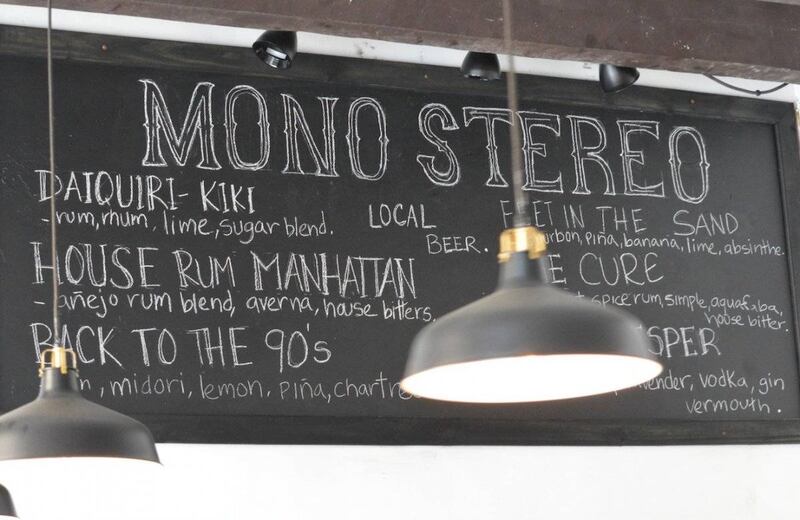 MONO STEREO
DAIQUIRI- KIKI
- rum, rhum, lime, sugar blend.
HOUSE RUM MANHATTAN
- añejo rum blend, averna, house bitters.
BACK TO THE 90's
midori, lemon, piña,
LOCAL
BEER.
IN THE SAND
piña, banana, lime, absinthe.
CURE
spice rum, simple, aquafaba,
house bitter.
vodka, gin
vermouth.